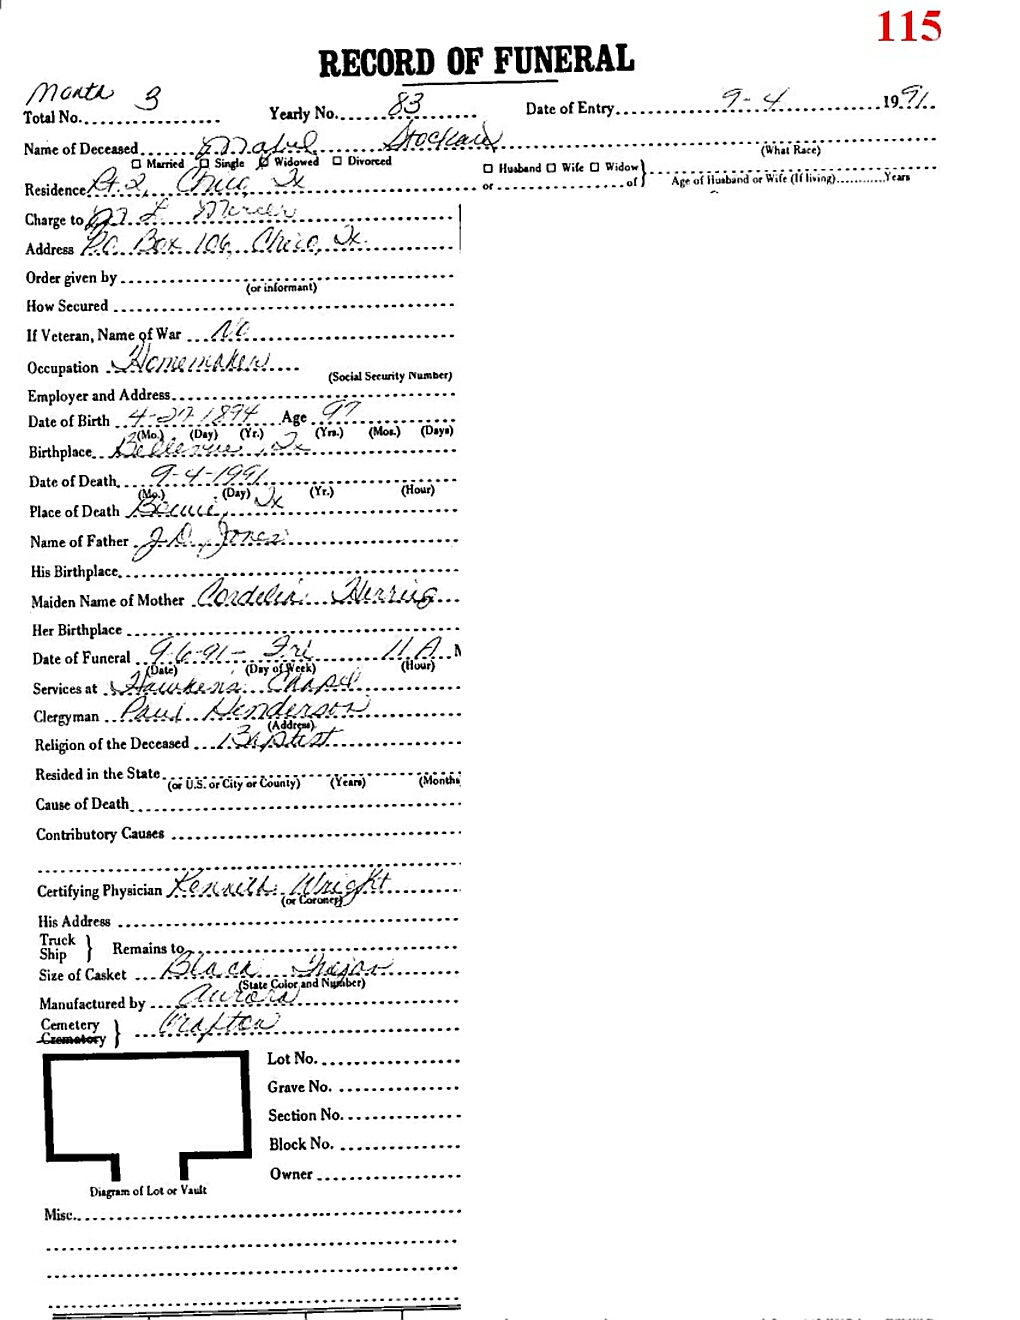 115
RECORD OF FUNERAL
Month 3
Total No. Yearly No. 83 Date of Entry 9-4 1991
Name of Deceased Mabel (What Race)
☐ Married ☐ Single ☑ Widowed ☐ Divorced ☐ Husband ☐ Wife ☐ Widow
Residence Rt. 2, Chico, Tx or of Age of Husband or Wife (If living) Years
Charge to M L Mercer
Address P.O. Box 106, Chico, Tx.
Order given by
(or informant)
How Secured
If Veteran, Name of War No
Occupation Homemaker
(Social Security Number)
Employer and Address
Date of Birth 4-27-1894 Age 97
(Mo.) (Day) (Yr.) (Yrs.) (Mos.) (Days)
Birthplace Bellevue, Tx
Date of Death 9-4-1991
(Mo.) (Day) (Yr.) (Hour)
Place of Death Bowie, Tx
Name of Father J.D. Jones
His Birthplace
Maiden Name of Mother Cordelia Herring
Her Birthplace
Date of Funeral 9-6-91 - Fri 11 A M
(Date) (Day of Week) (Hour)
Services at Hawkins Chapel
Clergyman Paul Henderson
(Address)
Religion of the Deceased Baptist
Resided in the State
(or U.S. or City or County) (Years) (Months
Cause of Death
Contributory Causes
Certifying Physician Kenneth Wright
(or Coroner)
His Address
Truck
Ship } Remains to
Size of Casket Black Trojan
(State Color and Number)
Manufactured by Aurora
Cemetery
Crematory } Crafton
Lot No.
Grave No.
Section No.
Block No.
Owner
Diagram of Lot or Vault
Misc.